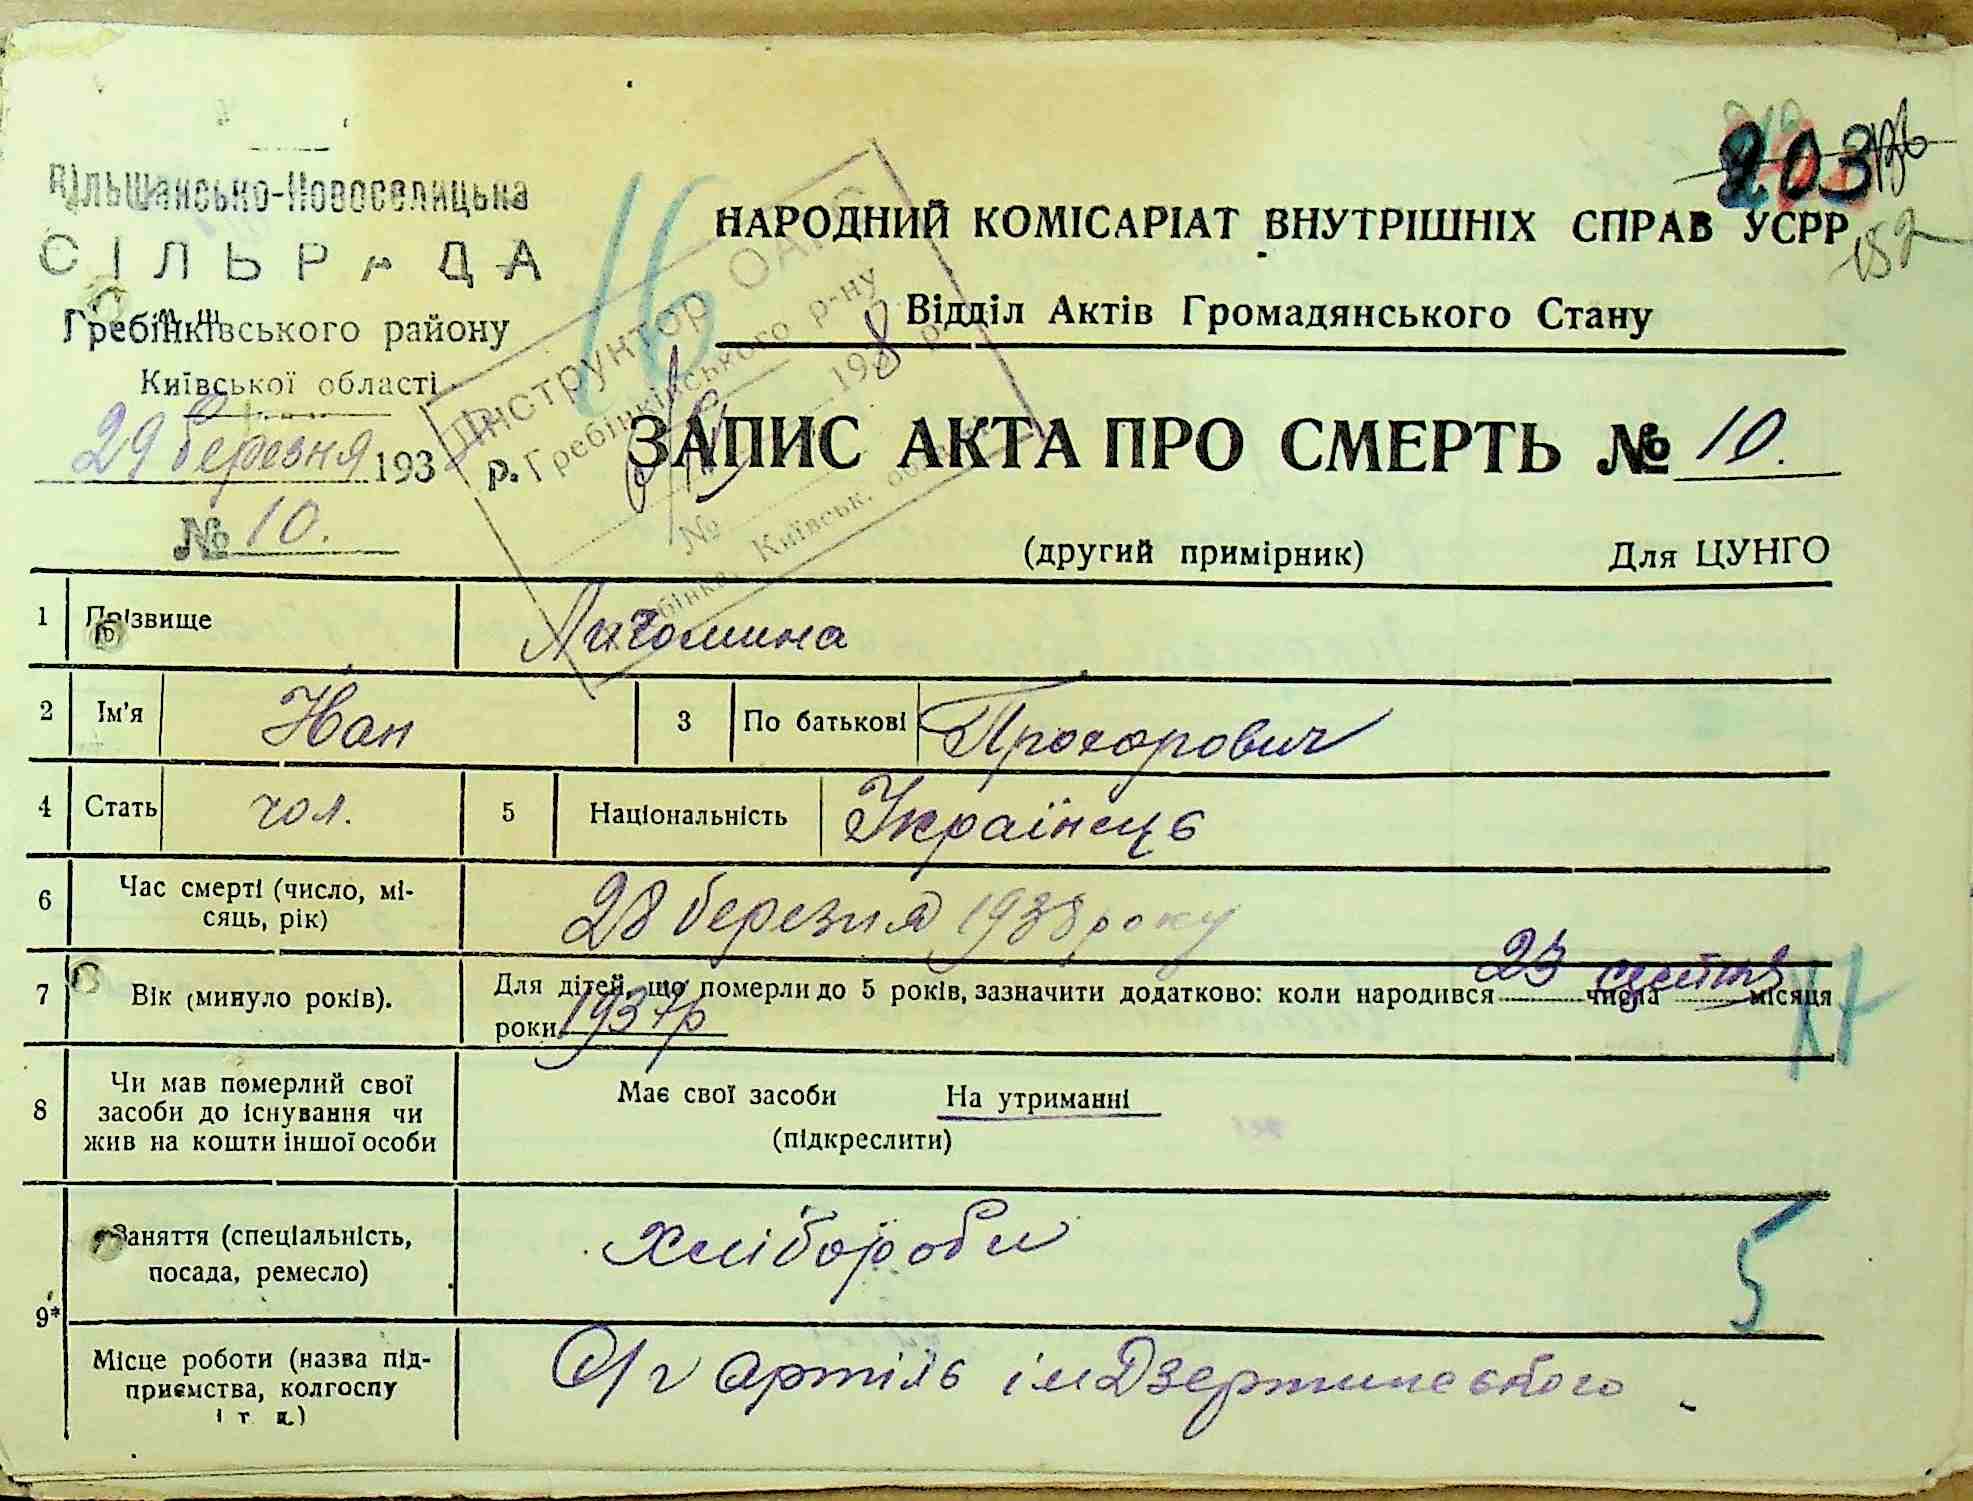 Вільшансько-Новоселицька
СІЛЬРАДА
Гребінківського району
Київської області
29 березня 1938 р.
№ 10.
16
203
152
НАРОДНИЙ КОМІСАРІАТ ВНУТРІШНІХ СПРАВ УСРР
Відділ Актів Громадянського Стану
Інструктор ОАГС
Гребінківського р-ну
198 р.
№
Київськ. обл.
ЗАПИС АКТА ПРО СМЕРТЬ № 10.
(другий примірник) Для ЦУНГО
1 Прізвище Личомина
2 Ім'я Иван 3 По батькові Прохорович
4 Стать чол. 5 Національність Українець
6 Час смерті (число, мі-
сяць, рік) 28 березня 1938 року
7 Вік (минуло років). Для дітей, що померли до 5 років, зазначити додатково: коли народився 23 числа серпня місяця
роки 1937р
17
8 Чи мав померлий свої
засоби до існування чи
жив на кошти іншої особи
Має свої засоби На утриманні
(підкреслити)
9* Заняття (спеціальність,
посада, ремесло) хлібороби
5
Місце роботи (назва під-
приємства, колгоспу
і т. д.) С/г артіль ім Дзержинського